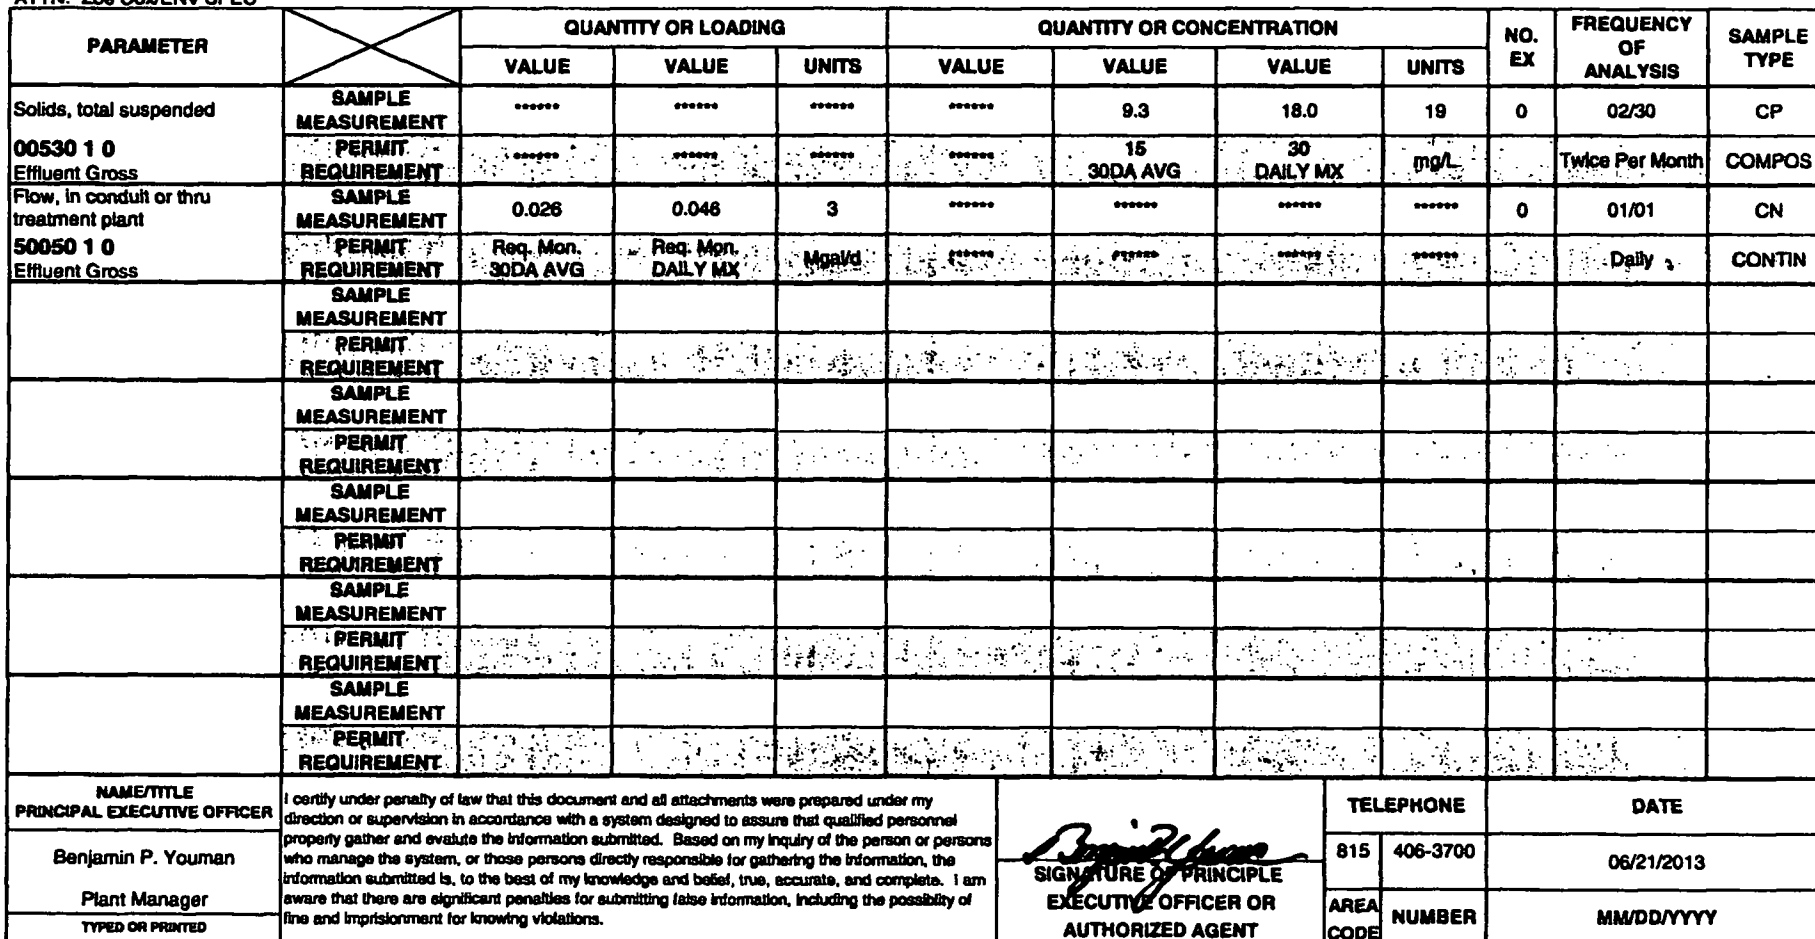 PARAMETER
QUANTITY OR LOADING
QUANTITY OR CONCENTRATION
NO. EX
FREQUENCY OF ANALYSIS
SAMPLE TYPE
VALUE VALUE UNITS VALUE VALUE VALUE UNITS
Solids, total suspended
SAMPLE MEASUREMENT ****** ****** ****** ****** 9.3 18.0 19 0 02/30 CP
00530 1 0
Effluent Gross
PERMIT REQUIREMENT ****** ****** ****** ****** 15 30DA AVG 30 DAILY MX mg/L Twice Per Month COMPOS
Flow, in conduit or thru
treatment plant
SAMPLE MEASUREMENT 0.026 0.046 3 ****** ****** ****** ****** 0 01/01 CN
50050 1 0
Effluent Gross
PERMIT REQUIREMENT Req. Mon. 30DA AVG Req. Mon. DAILY MX Mgal/d ****** ****** ****** ****** Daily CONTIN
SAMPLE
MEASUREMENT
PERMIT
REQUIREMENT
SAMPLE
MEASUREMENT
PERMIT
REQUIREMENT
SAMPLE
MEASUREMENT
PERMIT
REQUIREMENT
SAMPLE
MEASUREMENT
PERMIT
REQUIREMENT
SAMPLE
MEASUREMENT
PERMIT
REQUIREMENT
NAME/TITLE
PRINCIPAL EXECUTIVE OFFICER
Benjamin P. Youman
Plant Manager
TYPED OR PRINTED
I certify under penalty of law that this document and all attachments were prepared under my
direction or supervision in accordance with a system designed to assure that qualified personnel
properly gather and evalute the information submitted. Based on my inquiry of the person or persons
who manage the system, or those persons directly responsible for gathering the information, the
information submitted is, to the best of my knowledge and belief, true, accurate, and complete. I am
aware that there are significant penalties for submitting false information, including the possiblity of
fine and imprisionment for knowing violations.
SIGNATURE OF PRINCIPLE
EXECUTIVE OFFICER OR
AUTHORIZED AGENT
TELEPHONE
815 406-3700
AREA CODE NUMBER
DATE
06/21/2013
MM/DD/YYYY